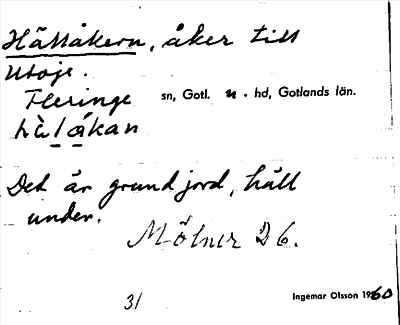 Hällåkern, åker till
Utoje.
Fleringe sn, Gotl. n. hd, Gotlands län.
hä̀l ǻkan
Det är grund jord, häll
under.
Mölner 26.
31
Ingemar Olsson 1960